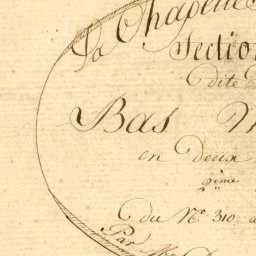 La Chapelle
Section
dite
Bas
en deux
2ème
du N° 310 a
Par